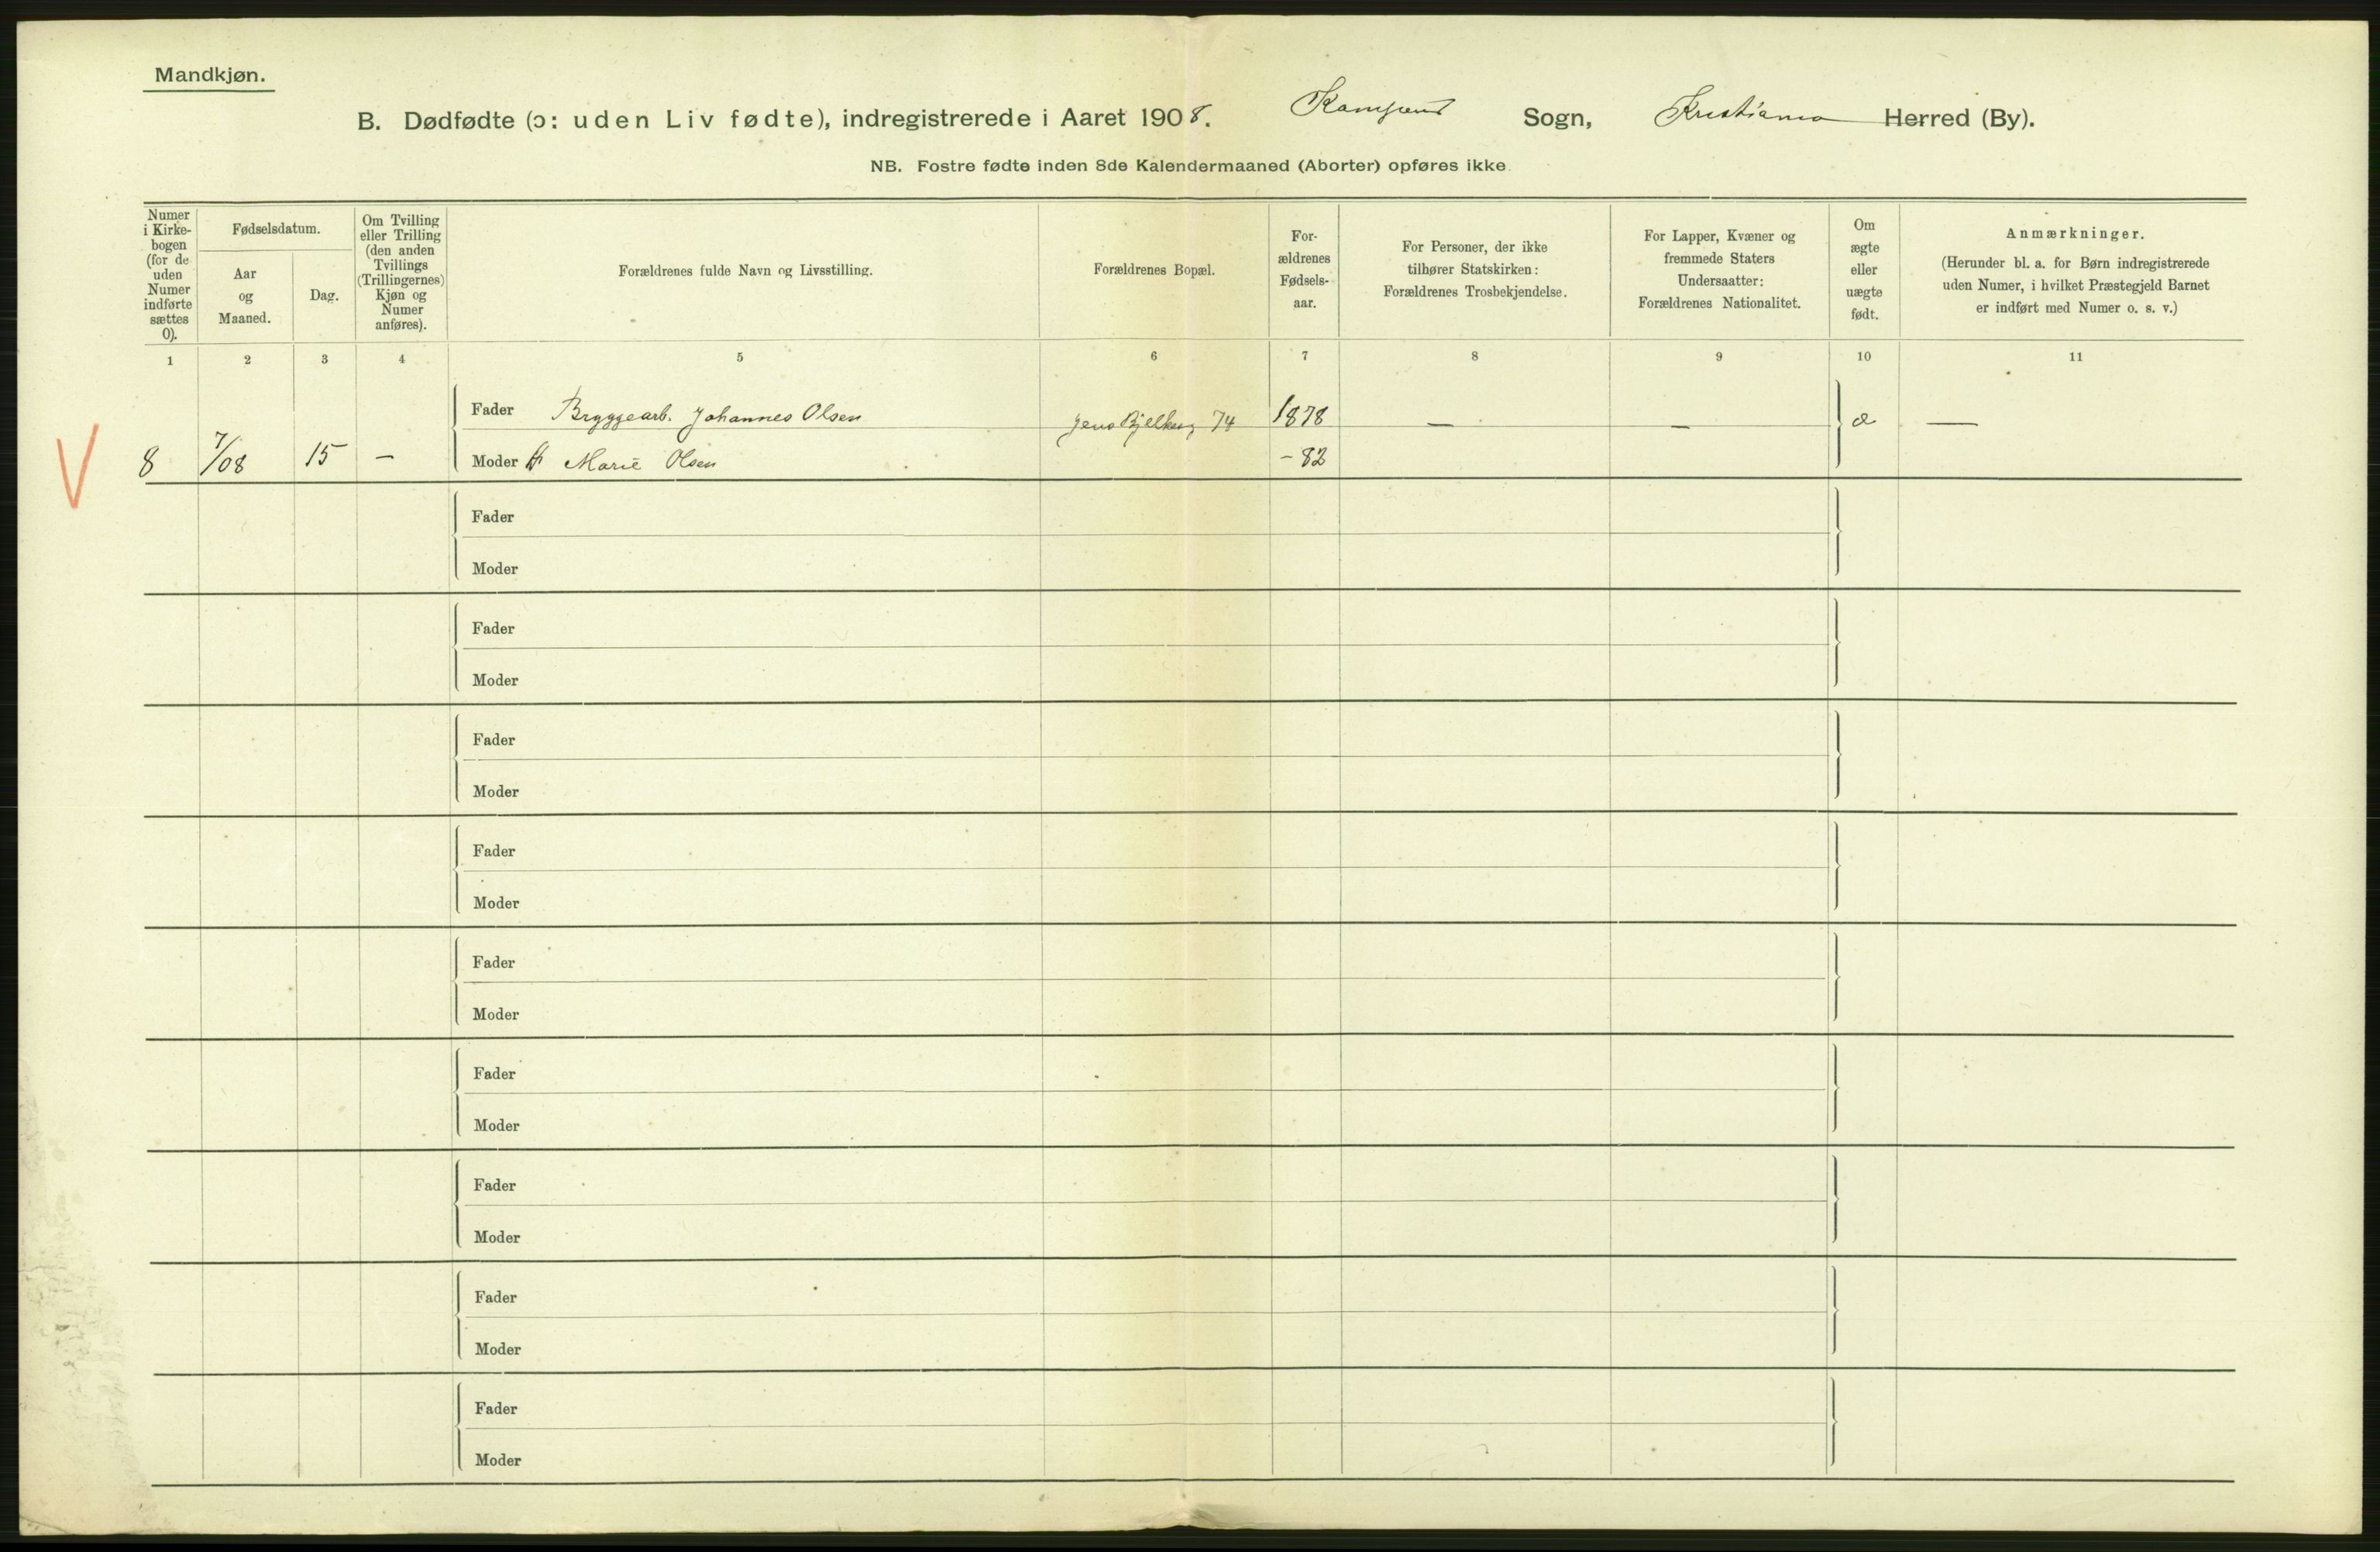 Mandkjøn.
B. Dødfødte (ɔ: uden Liv fødte), indregistrerede i Aaret 1908. Kampens Sogn, Kristiania Herred (By).
NB. Fostre fødte inden 8de Kalendermaaned (Aborter) opføres ikke.
Numer
i Kirke-
bogen
(for de
uden
Numer
indførte
sættes
0).
Fødselsdatum.
Aar
og
Maaned.
Dag.
Om Tvilling
eller Trilling
(den anden
Tvillings
(Trillingernes)
Kjøn og
Numer
anføres).
Forældrenes fulde Navn og Livsstilling.
Forældrenes Bopæl.
For-
ældrenes
Fødsels-
aar.
For Personer, der ikke
tilhører Statskirken:
Forældrenes Trosbekjendelse.
For Lapper, Kvæner og
fremmede Staters
Undersaatter:
Forældrenes Nationalitet.
Om
ægte
eller
uægte
født.
Anmærkninger.
(Herunder bl. a. for Børn indregistrerede
uden Numer, i hvilket Præstegjeld Barnet
er indført med Numer o. s. v.)
1 2 3 4 5 6 7 8 9 10 11
Fader Bryggearb. Johannes Olsen Jens Bjelkesg 74 1878 — — æ —
8 7/08 15 – Moder H Marie Olsen – 82
Fader
Moder
Fader
Moder
Fader
Moder
Fader
Moder
Fader
Moder
Fader
Moder
Fader
Moder
Fader
Moder
Fader
Moder